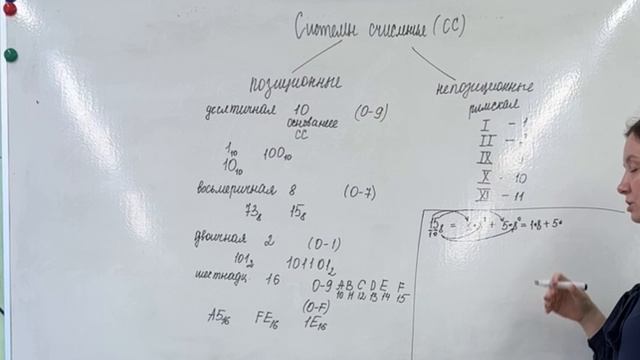 Системы счисления (СС)
позиционные
непозиционные
десятичная 10 (0-9)
основание
СС
1₁₀ 100₁₀
10₁₀
восьмеричная 8 (0-7)
73₈ 15₈
двоичная 2 (0-1)
101₂ 101101₂
шестнадц 16 0-9 A B C D E F
10 11 12 13 14 15
(0-F)
A5₁₆ FE₁₆ 1E₁₆
римская
I - 1
II -
IX
X - 10
XI - 11
15₈ = + 5·8⁰ = 1·8 + 5·